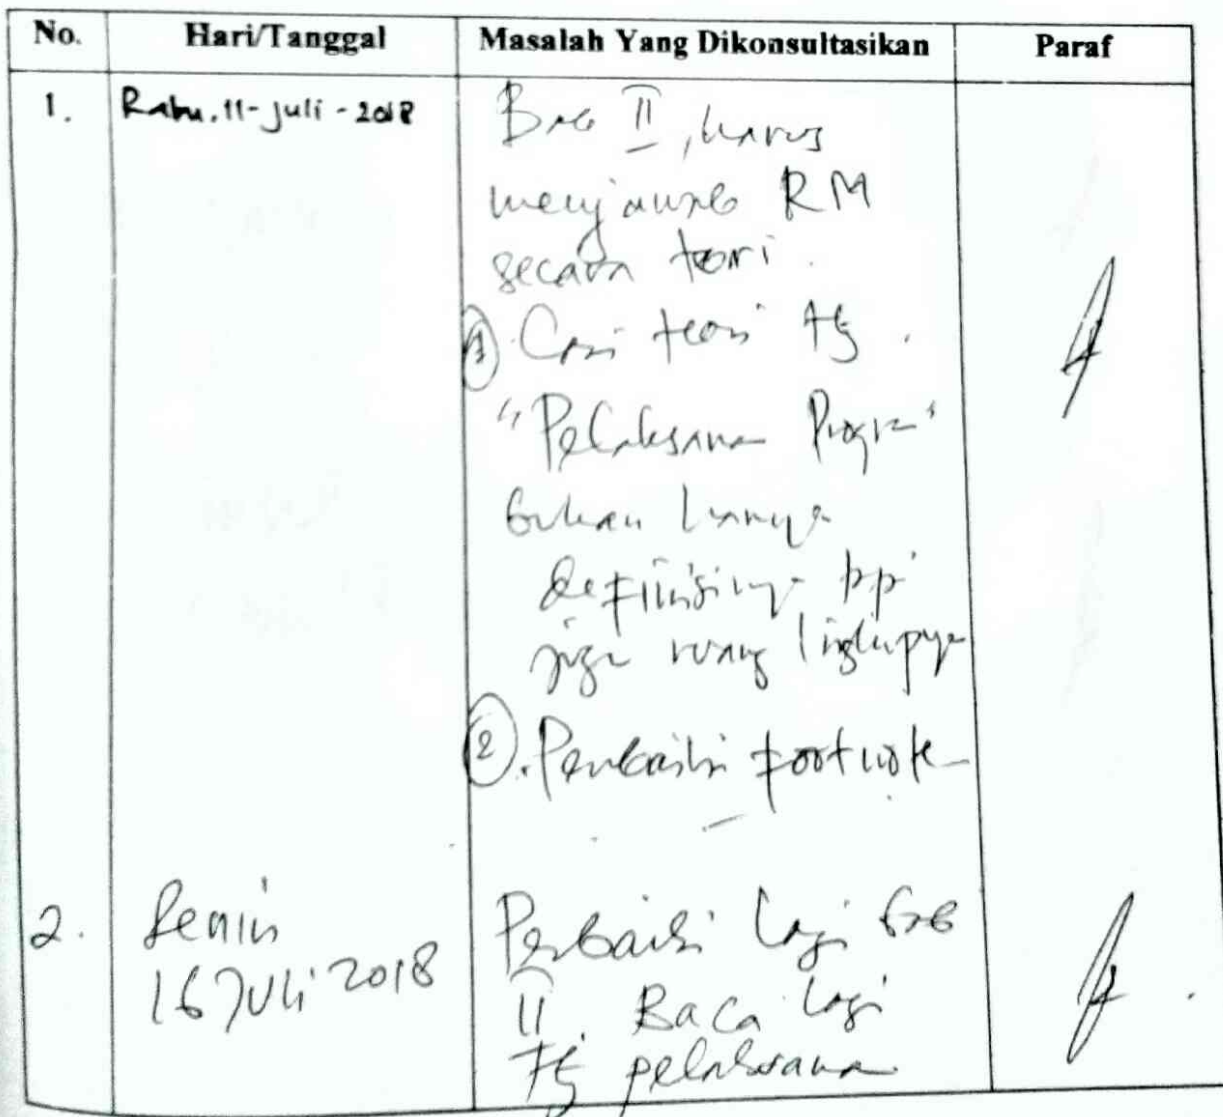 No. Hari/Tanggal Masalah Yang Dikonsultasikan Paraf
1. Rabu, 11-Juli-2018 Bab II, harus
menjawab RM
secara teori.
1. Cari teori ttg
"Pelaksana Progr"
bukan hanya
definisinya tpi
juga ruang lingkupnya
2. Perbaiki footnote
2. Senin Perbaiki lagi bab
16 Juli 2018 II. Baca lagi
ttg pelaksana